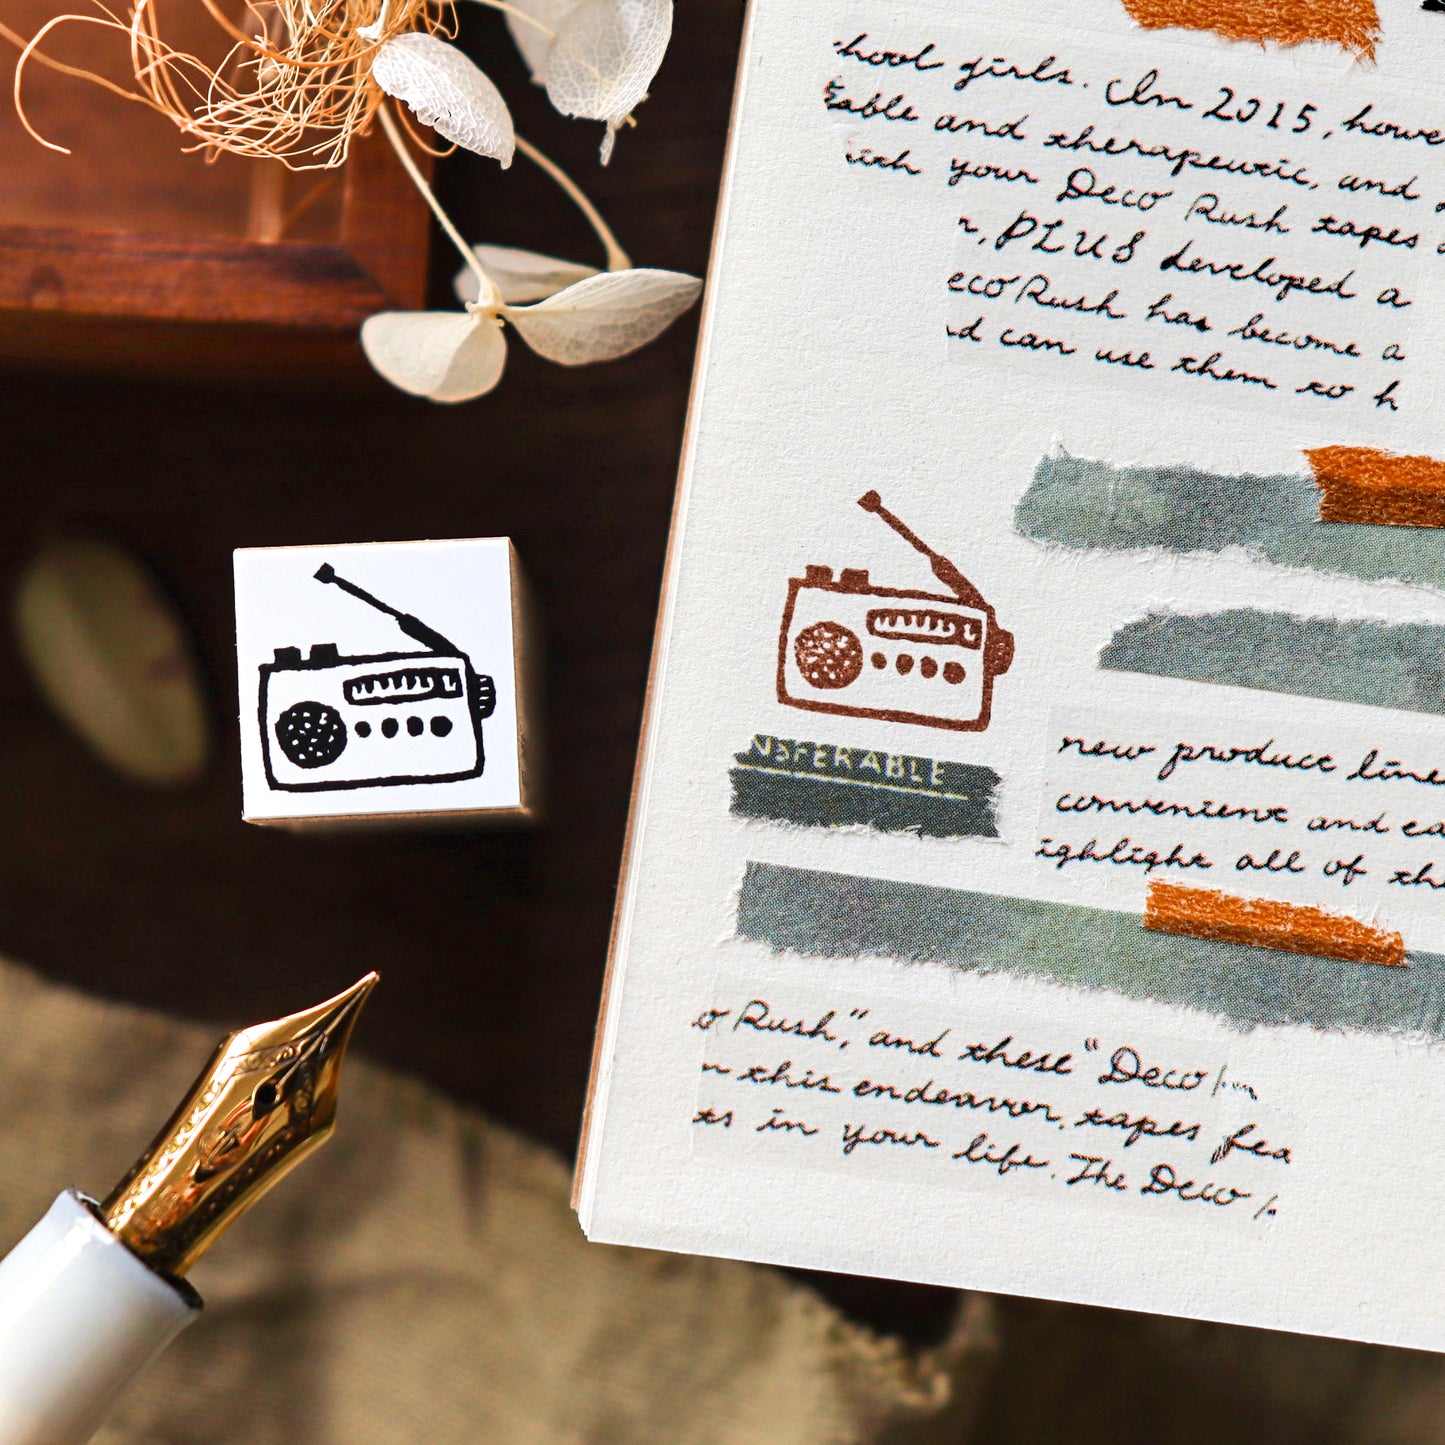 hool girls. In 2015, howe
table and therapeutic, and
ith your Deco Rush tapes
r, PLUS developed a
eco Rush has become a
d can use them to h
NSFERABLE
new product line
convenient and ea
ighlight all of th
o Rush," and these "Deco
n this endeavor, tapes fea
ts in your life. The Deco